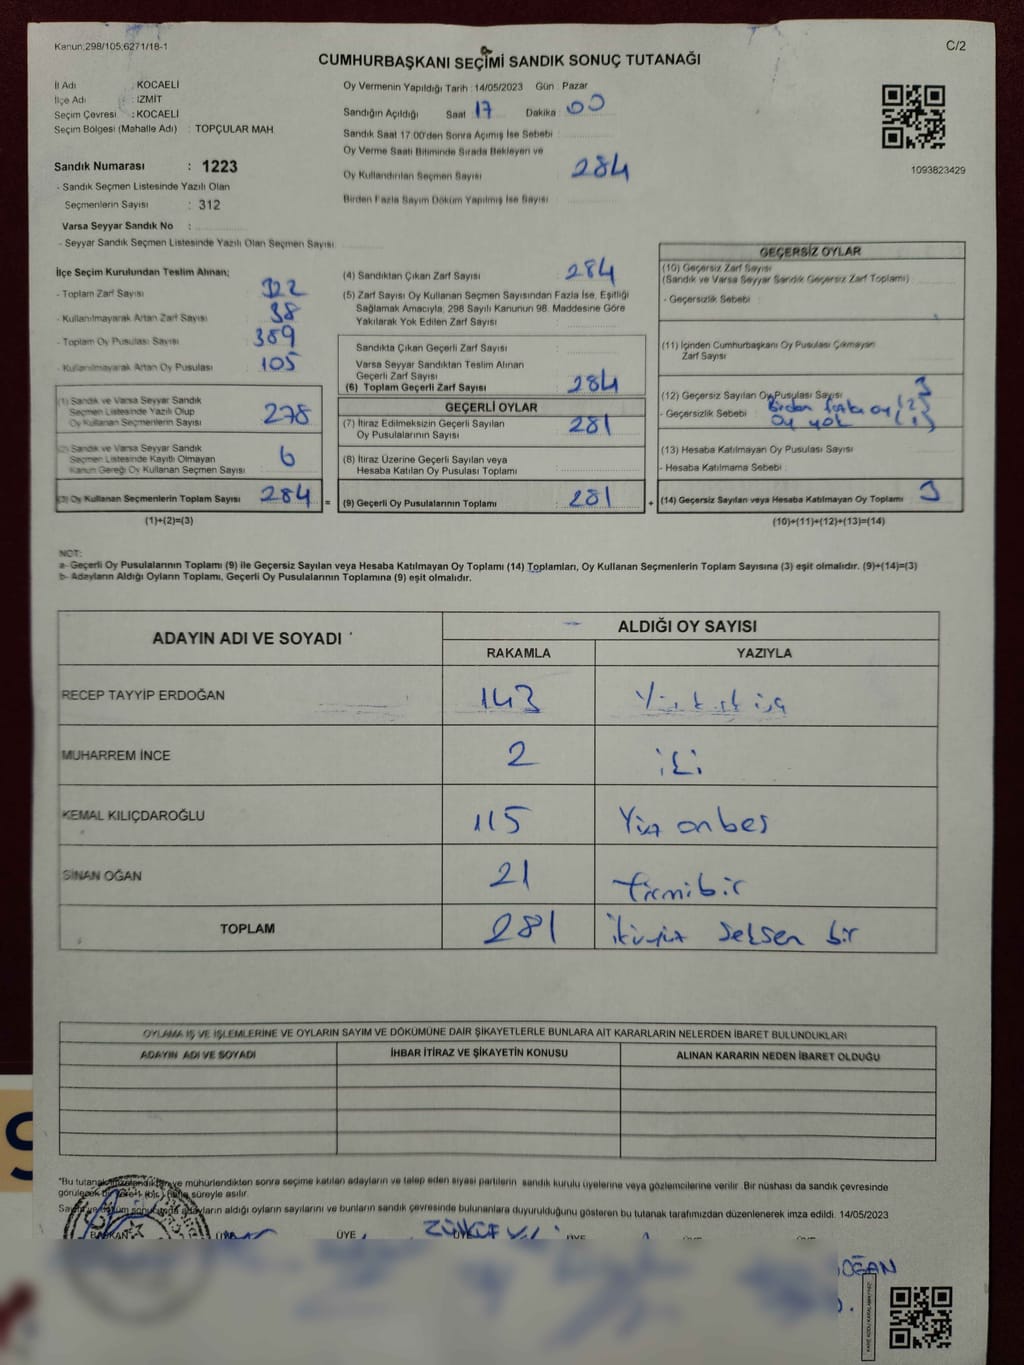 Kanun:298/105;6271/18-1
C/2
CUMHURBAŞKANI SEÇİMİ SANDIK SONUÇ TUTANAĞI
İl Adı : KOCAELİ
İlçe Adı : İZMİT
Seçim Çevresi : KOCAELİ
Seçim Bölgesi (Mahalle Adı) : TOPÇULAR MAH
Sandık Numarası : 1223
- Sandık Seçmen Listesinde Yazılı Olan
Seçmenlerin Sayısı : 312
Varsa Seyyar Sandık No :
- Seyyar Sandık Seçmen Listesinde Yazılı Olan Seçmen Sayısı
Oy Vermenin Yapıldığı Tarih : 14/05/2023 Gün : Pazar
Sandığın Açıldığı Saat 17 Dakika 00
Sandık Saat 17.00'den Sonra Açımış İse Sebebi
Oy Verme Saati Bitiminde Sırada Bekleyen ve
Oy Kullandırılan Seçmen Sayısı 284
Birden Fazla Sayım Döküm Yapılmış İse Sayısı
1093823429
İlçe Seçim Kurulundan Teslim Alınan;
- Toplam Zarf Sayısı 322
- Kullanılmayarak Artan Zarf Sayısı 38
- Toplam Oy Pusulası Sayısı 389
- Kullanılmayarak Artan Oy Pusulası 105
(1) Sandık ve Varsa Seyyar Sandık
Seçmen Listesinde Yazılı Olup
Oy Kullanan Seçmenlerin Sayısı 278
(2) Sandık ve Varsa Seyyar Sandık
Seçmen Listesinde Kayıtlı Olmayan
Kanun Gereği Oy Kullanan Seçmen Sayısı 6
(3) Oy Kullanan Seçmenlerin Toplam Sayısı 284 =
(1)+(2)=(3)
(4) Sandıktan Çıkan Zarf Sayısı 284
(5) Zarf Sayısı Oy Kullanan Seçmen Sayısından Fazla İse, Eşitliği
Sağlamak Amacıyla, 298 Sayılı Kanunun 98. Maddesine Göre
Yakılarak Yok Edilen Zarf Sayısı
Sandıkta Çıkan Geçerli Zarf Sayısı
Varsa Seyyar Sandıktan Teslim Alınan
Geçerli Zarf Sayısı
(6) Toplam Geçerli Zarf Sayısı 284
GEÇERLİ OYLAR
(7) İtiraz Edilmeksizin Geçerli Sayılan
Oy Pusulalarının Sayısı 281
(8) İtiraz Üzerine Geçerli Sayılan veya
Hesaba Katılan Oy Pusulası Toplamı
(9) Geçerli Oy Pusulalarının Toplamı 281 +
GEÇERSİZ OYLAR
(10) Geçersiz Zarf Sayısı
(Sandık ve Varsa Seyyar Sandık Geçersiz Zarf Toplamı)
- Geçersizlik Sebebi
(11) İçinden Cumhurbaşkanı Oy Pusulası Çıkmayan
Zarf Sayısı
(12) Geçersiz Sayılan Oy Pusulası Sayısı 3
- Geçersizlik Sebebi Birden fazla oy (2)
Oy yok (1)
(13) Hesaba Katılmayan Oy Pusulası Sayısı
- Hesaba Katılmama Sebebi
(14) Geçersiz Sayılan veya Hesaba Katılmayan Oy Toplamı 3
(10)+(11)+(12)+(13)=(14)
NOT:
a- Geçerli Oy Pusulalarının Toplamı (9) ile Geçersiz Sayılan veya Hesaba Katılmayan Oy Toplamı (14) Toplamları, Oy Kullanan Seçmenlerin Toplam Sayısına (3) eşit olmalıdır. (9)+(14)=(3)
b- Adayların Aldığı Oyların Toplamı, Geçerli Oy Pusulalarının Toplamına (9) eşit olmalıdır.
ADAYIN ADI VE SOYADI ALDIĞI OY SAYISI
RAKAMLA YAZIYLA
RECEP TAYYİP ERDOĞAN 143
MUHARREM İNCE 2 iki
KEMAL KILIÇDAROĞLU 115 Yüz onbeş
SİNAN OĞAN 21 Yirmibir
TOPLAM 281 ikiyüz seksen bir
OYLAMA İŞ VE İŞLEMLERİNE VE OYLARIN SAYIM VE DÖKÜMÜNE DAİR ŞİKAYETLERLE BUNLARA AİT KARARLARIN NELERDEN İBARET BULUNDUKLARI
ADAYIN ADI VE SOYADI İHBAR İTİRAZ VE ŞİKAYETİN KONUSU ALINAN KARARIN NEDEN İBARET OLDUĞU
*Bu tutanak ve mühürlendikten sonra seçime katılan adayların ve talep eden siyasi partilerin sandık kurulu üyelerine veya gözlemcilerine verilir. Bir nüshası da sandık çevresinde
görülecek süreyle asılır.
adayların aldığı oyların sayılarını ve bunların sandık çevresinde bulunanlara duyurulduğunu gösteren bu tutanak tarafımızdan düzenlenerek imza edildi. 14/05/2023
BAŞKAN ÜYE ÜYE